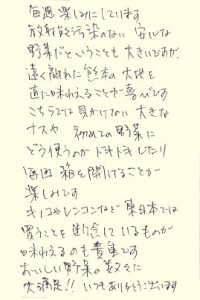 毎週楽しみにしています
放射能汚染のない安心な
野菜だということも大きいですが、
遠く離れた熊本の大地を
直に味わえることが喜びです
こちらでは見かけない大きな
ナスや 初めての野菜に
どう使うのかドキドキしたり
毎回 箱を開けることが
楽しみです
キノコやレンコンなど東日本では
買うことを断念しているものが
味わえるのも貴重です
おいしい野菜の数々に
大満足!! いつもありがとうございます